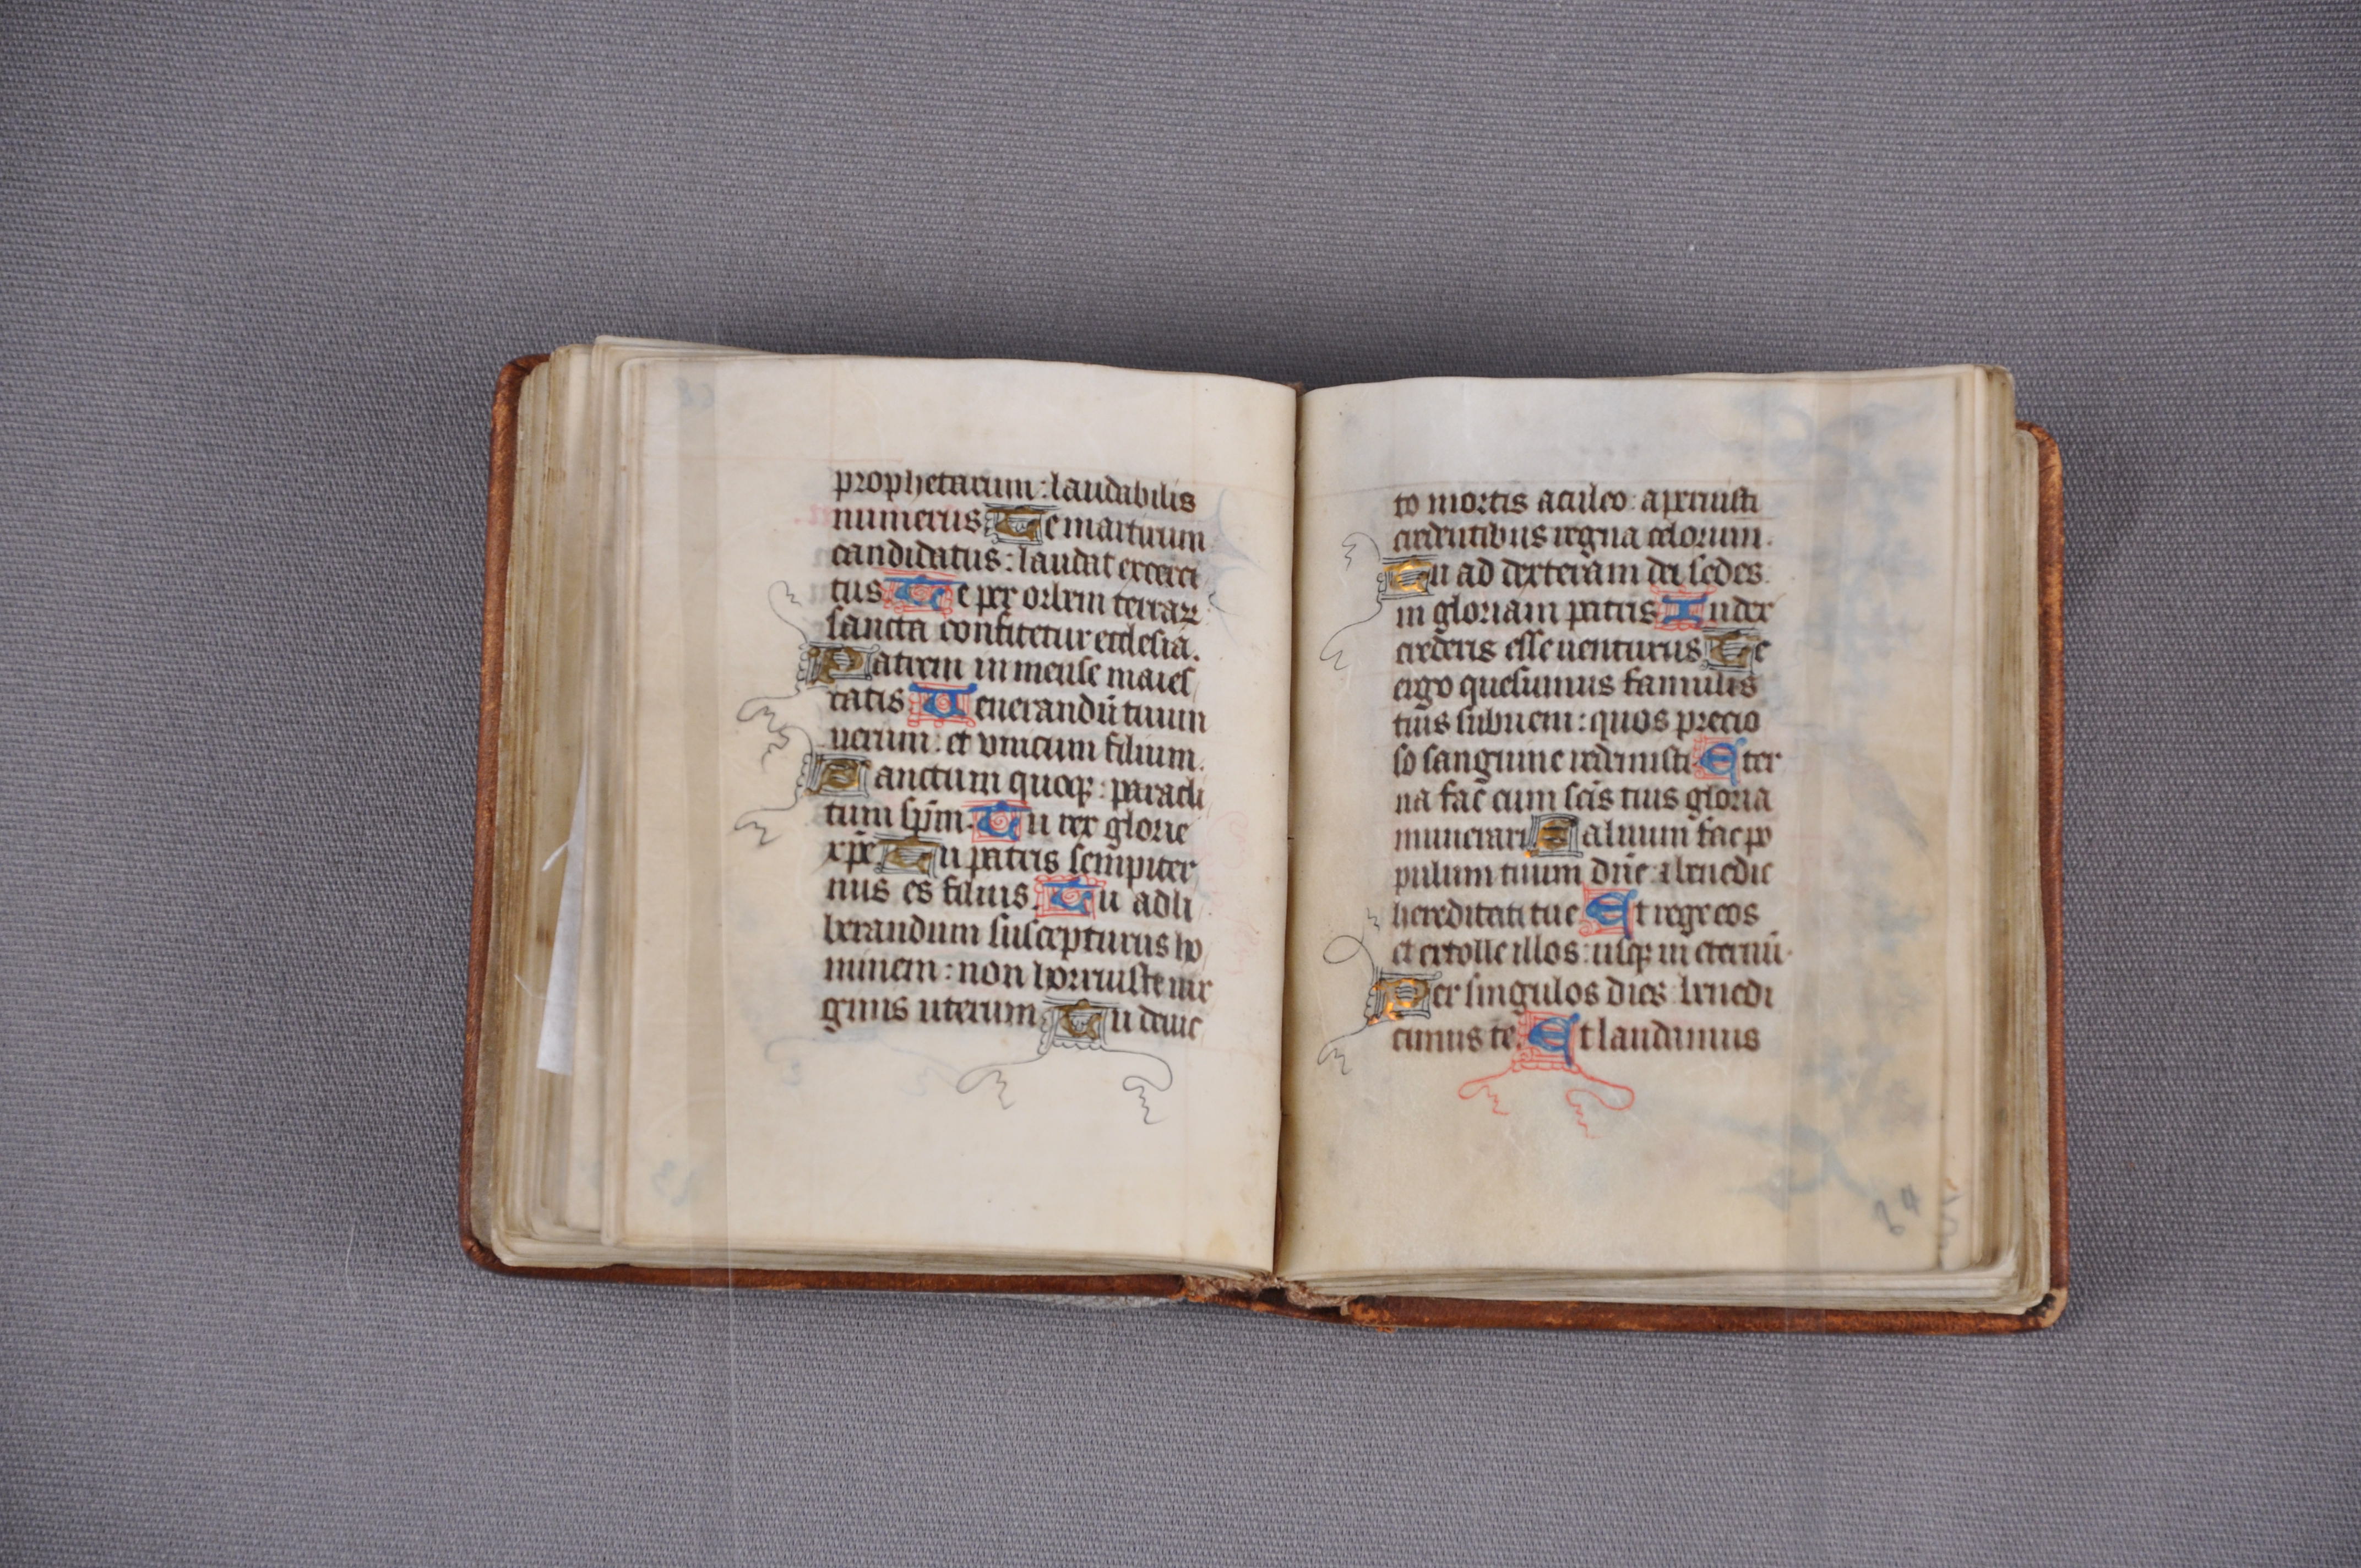 prophetarum: laudabilis
numerus Te martirum
candidatus: laudat exerci
tus Te per orbem terraꝝ
sancta confitetur ecclesia.
Patrem inmense maies
tatis Uenerandū tuum
uerum: et vnicum filium.
Sanctum quoqꝫ: paracli
tum sp̄m. Tu rex glorie
xp̄e Tu patris sempiter
nus es filius. Tu adli
berandum suscepturus ho
minem: non horruiste uir
ginis uterum Tu deuic
to mortis aculeo: aperuisti
credentibus regna celorum.
Tu ad dexteram dei sedes
in gloriam patris Iudex
crederis esse uenturus Te
ergo quesumus famulis
tuis subueni: quos precio
so sanguine redemisti Eter
na fac cum sc̄is tuis gloria
munerari Saluum fac po
pulum tuum dn̄e: ⁊ benedic
hereditati tue Et rege eos
et extolle illos: usqꝫ in eternū.
Per singulos dies: benedi
cimus te. Et laudamus